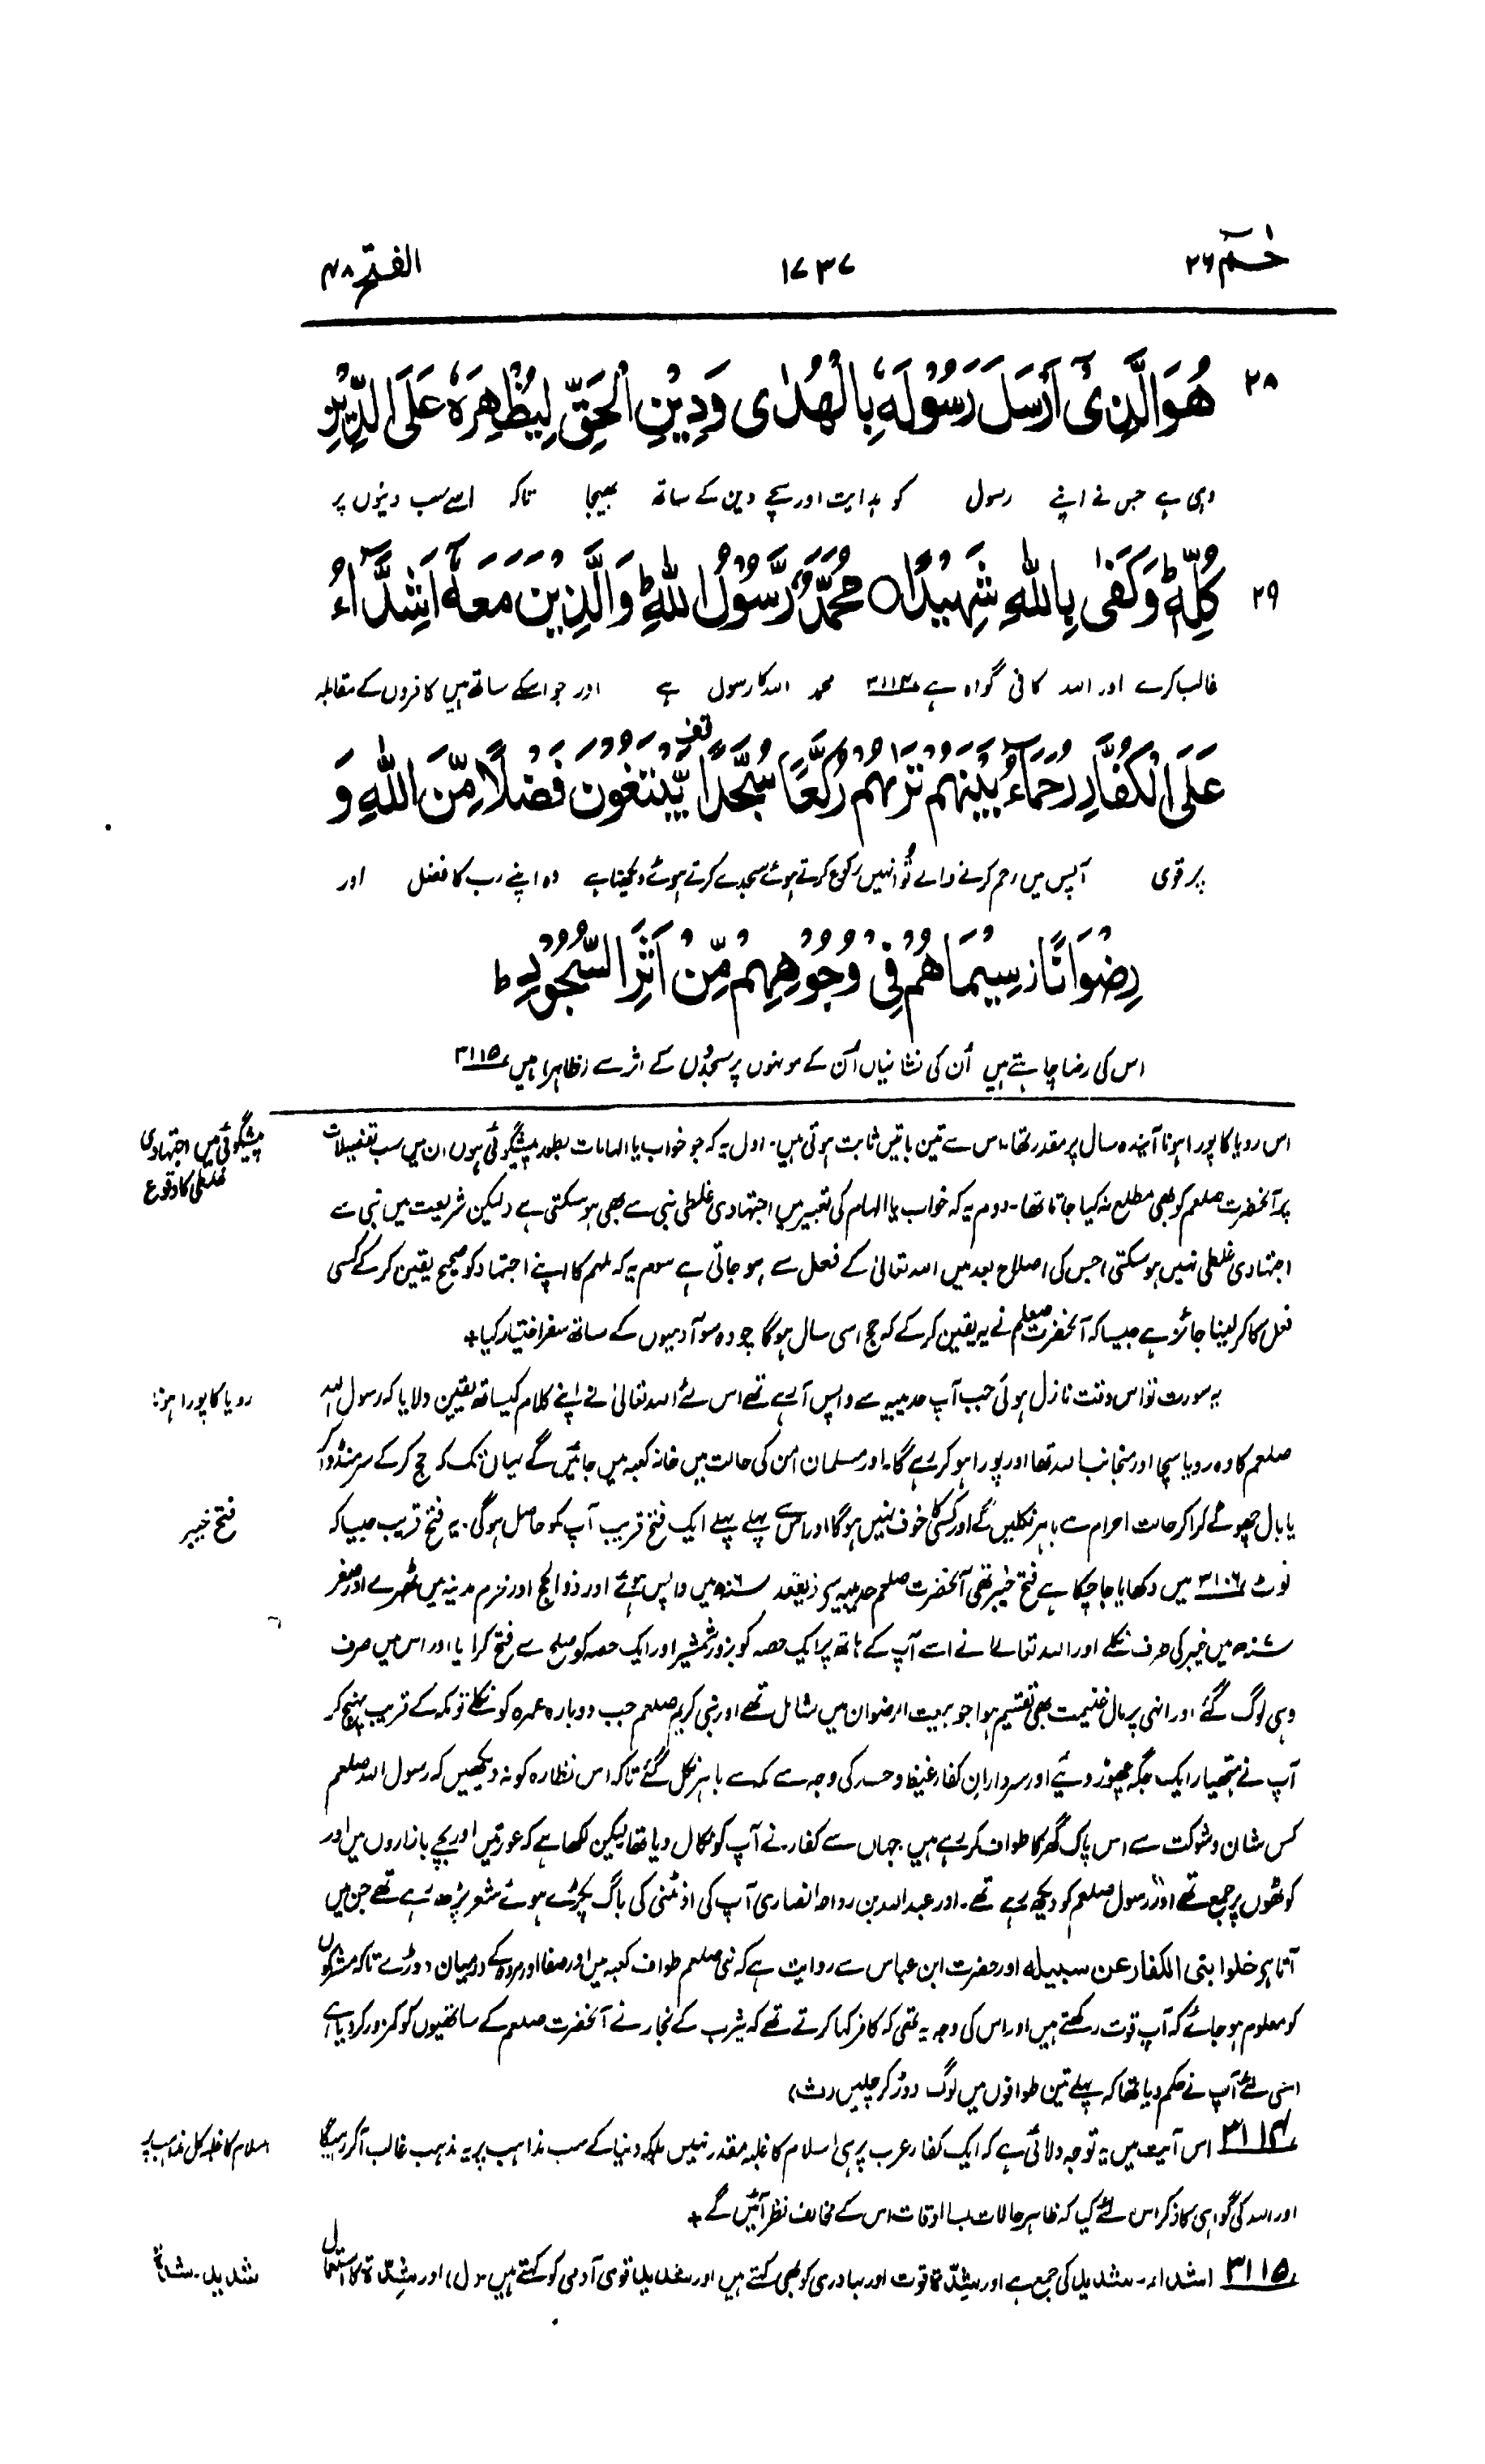 حٰمٓ ۲۶
۱۷۳۷
الفتح ۴۸
۲۸ هُوَ الَّذِیْٓ اَرْسَلَ رَسُوْلَهٗ بِالْهُدٰی وَدِیْنِ الْحَقِّ لِیُظْهِرَهٗ عَلَی الدِّیْنِ
وہی ہے جس نے اپنے رسول کو ہدایت اور سچے دین کے ساتھ بھیجا تاکہ اسے سب دینوں پر
۲۹ کُلِّهٖ ؕ وَکَفٰی بِاللّٰهِ شَهِیْدًا ○ مُحَمَّدٌ رَّسُوْلُ اللّٰهِ ؕ وَالَّذِیْنَ مَعَهٗۤ اَشِدَّآءُ
غالب کرے اور اللہ کافی گواہ ہے ۳۱۱۴ محمد اللہ کا رسول ہے اور جو اسکے ساتھ ہیں کافروں کے مقابلہ
عَلَی الْکُفَّارِ رُحَمَآءُ بَیْنَهُمْ تَرٰىهُمْ رُکَّعًا سُجَّدًا یَّبْتَغُوْنَ فَضْلًا مِّنَ اللّٰهِ وَ
پر قوی آپس میں رحم کرنے والے تُو انہیں رکوع کرتے ہوئے سجدے کرتے ہوئے دیکھتا ہے وہ اپنے رب کا فضل اور
رِضْوَانًا ز سِیْمَاهُمْ فِیْ وُجُوْهِهِمْ مِّنْ اَثَرِ السُّجُوْدِ ؕ
اس کی رضا چاہتے ہیں اُن کی نشانیاں اُن کے مونہوں پر سجدوں کے اثر سے (ظاہر) ہیں ۳۱۱۵
پیشگوئی میں اجتہادی
غلطی کا وقوع
اس رویا کا پورا ہونا آیندہ سال پر مقدر تھا، اس سے تین باتیں ثابت ہوتی ہیں۔ اول یہ کہ جو خواب یا الہامات بطور پیشگوئی ہوں ان میں سب تفصیلات
پر آنحضرت صلعم کو بھی مطلع نہ کیا جاتا تھا۔ دوم یہ کہ خواب یا الہام کی تعبیر میں اجتہادی غلطی نبی سے بھی ہو سکتی ہے (لیکن شریعت میں نبی سے
اجتہادی غلطی نہیں ہو سکتی) جس کی اصلاح بعد میں اللہ تعالیٰ کے فعل سے ہو جاتی ہے سوم یہ کہ ملہم کا اپنے اجتہاد کو صحیح یقین کر کے کسی
فعل کا کر لینا جائز ہے جیسا کہ آنحضرت صلعم نے یہ یقین کر کے کہ حج اسی سال ہوگا چودہ سو آدمیوں کے ساتھ سفر اختیار کیا +
رویا کا پورا ہونا
یہ سورت تو اس وقت نازل ہوئی جب آپ حدیبیہ سے واپس آرہے تھے اس لئے اللہ تعالیٰ نے اپنے کلام کیساتھ یقین دلایا کہ رسول اللہ
صلعم کا وہ رویا سچا اور منجانب اللہ تھا اور پورا ہو کر رہے گا۔ اور مسلمان امن کی حالت میں خانہ کعبہ میں جائیں گے یہاں تک کہ حج کر کے سر منڈوا کر
فتح خیبر
یا بال چھوٹے کرا کر حالت احرام سے باہر نکلیں گے اور کسی کا خوف نہیں ہوگا اور اس سے پہلے پہلے ایک فتح قریب آپ کو حاصل ہوگی۔ یہ فتح قریب جیسا کہ
نوٹ ۳۱۰۶ میں دکھایا جا چکا ہے فتح خیبر تھی آنحضرت صلعم حدیبیہ سے ذیقعد سنہ ۶ میں واپس ہوئے اور ذوالحج اور محرم مدینہ میں ٹھہرے اور صفر
سنہ ۷ میں خیبر کی طرف نکلے اور اللہ تعالےٰ نے اسے آپ کے ہاتھ پر ایک حصہ کو بزور شمشیر اور ایک حصہ کو صلح سے فتح کرایا اور اس میں صرف
وہی لوگ گئے اور انہی پر مال غنیمت بھی تقسیم ہوا جو بیعت الرضوان میں شامل تھے اور نبی کریم صلعم جب دوبارہ عمرہ کو نکلے تو مکہ کے قریب پہنچ کر
آپ نے ہتھیار ایک جگہ چھوڑ دیئے اور سردارانِ کفار غیظ و حسد کی وجہ سے مکہ سے باہر نکل گئے تاکہ اس نظارہ کو نہ دیکھیں کہ رسول اللہ صلعم
کس شان و شوکت سے اس پاک گھر کا طواف کر رہے ہیں جہاں سے کفار نے آپ کو نکال دیا تھا لیکن لکھا ہے کہ عورتیں اور بچے بازاروں میں اور
کوٹھوں پر جمع تھے اور رسول صلعم کو دیکھ رہے تھے۔ اور عبداللہ بن رواحہ انصاری آپ کی اونٹنی کی باگ پکڑے ہوئے شعر پڑھ رہے تھے جن میں
آتا ہے خلوا بنی الکفار عن سبیله اور حضرت ابن عباس سے روایت ہے کہ نبی صلعم طواف کعبہ میں اور صفا اور مروہ کے درمیان دوڑے تاکہ مشرکوں
کو معلوم ہو جائے کہ آپ قوت رکھتے ہیں اور اس کی وجہ یہ تھی کہ کافر کہا کرتے تھے کہ یثرب کے بخار نے آنحضرت صلعم کے ساتھیوں کو کمزور کر دیا ہے
اسی لئے آپ نے حکم دیا تھا کہ پہلے تین طوافوں میں لوگ دوڑ کر چلیں (ث)
اسلام کا غلبہ کل مذاہب پر
۳۱۱۴ اس آیت میں یہ توجہ دلائی ہے کہ ایک کفار عرب پر ہی اسلام کا غلبہ مقدر نہیں بلکہ دنیا کے سب مذاہب پر یہ مذہب غالب آکر رہیگا
اور اللہ کی گواہی کا ذکر اس لئے کیا کہ ظاہر حالات بسا اوقات اس کے مخالف نظر آئیں گے +
شدید۔ شدة
۳۱۱۵ اشداء۔ شدید کی جمع ہے اور شِدّة قوت اور بہادری کو بھی کہتے ہیں اور شدید قوی آدمی کو کہتے ہیں (ل) اور شِدّة کا استعمال